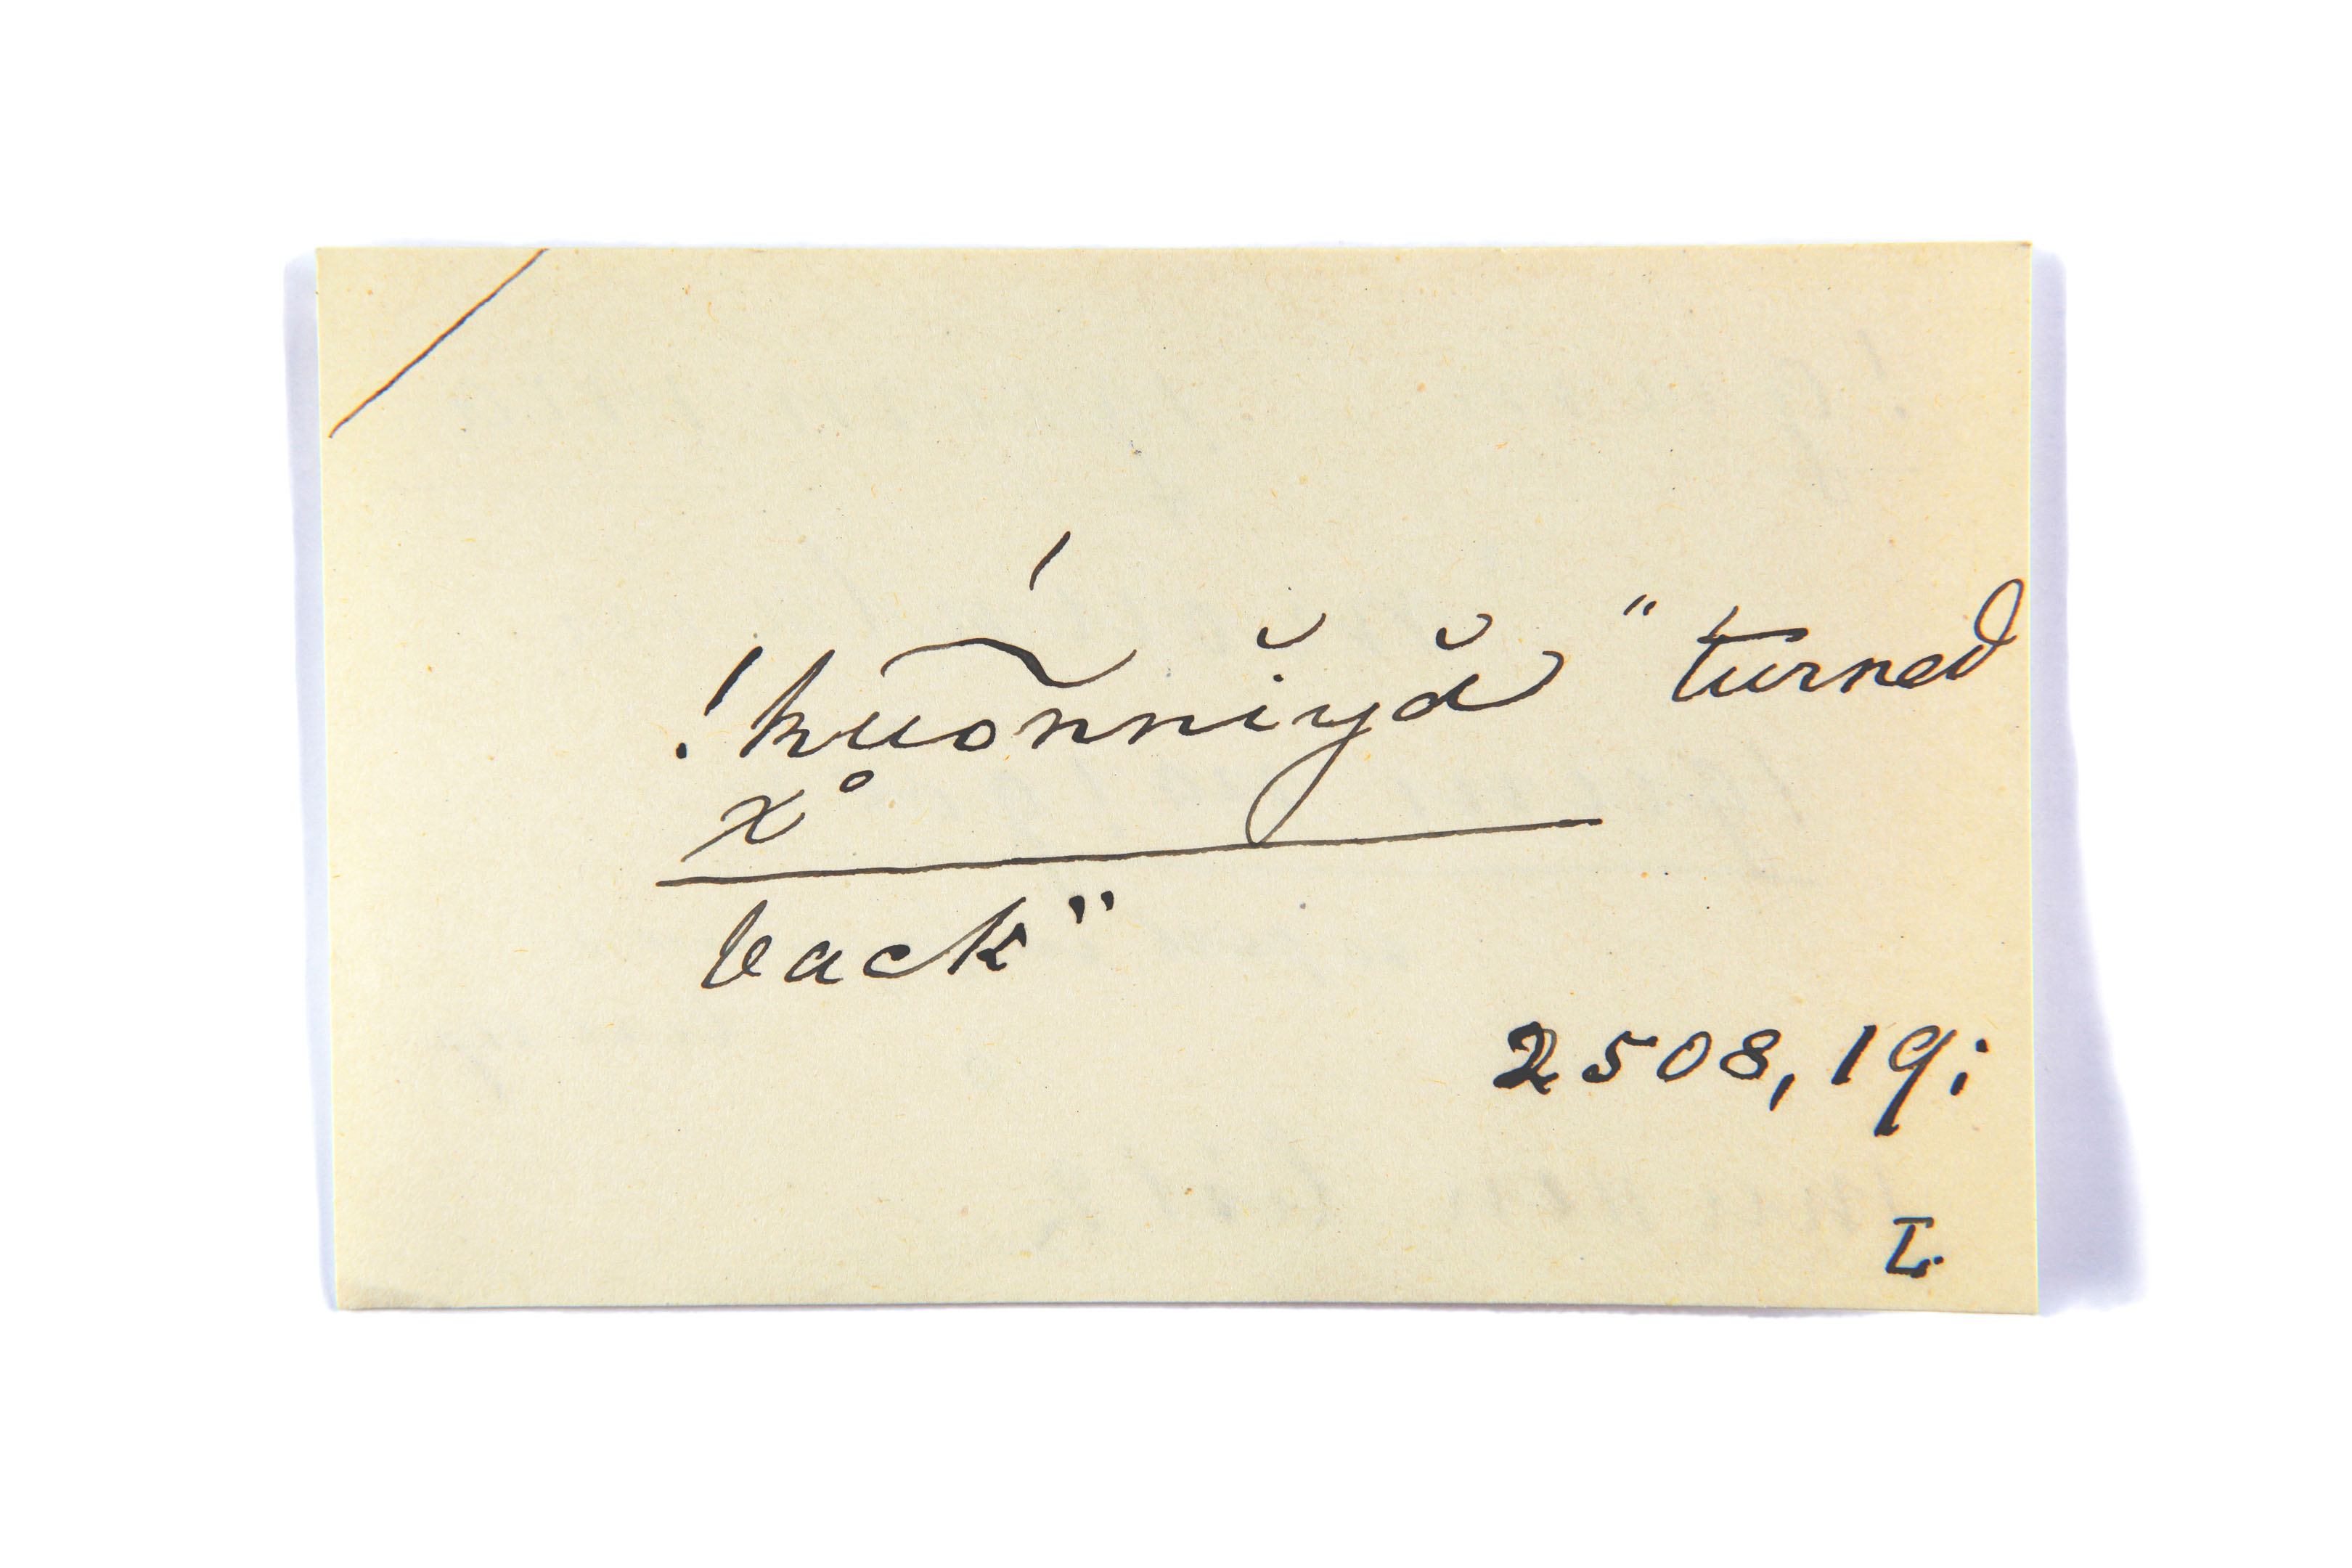 !kuṍnnĭyă "turned
x°
back"
2508, 19;
L.